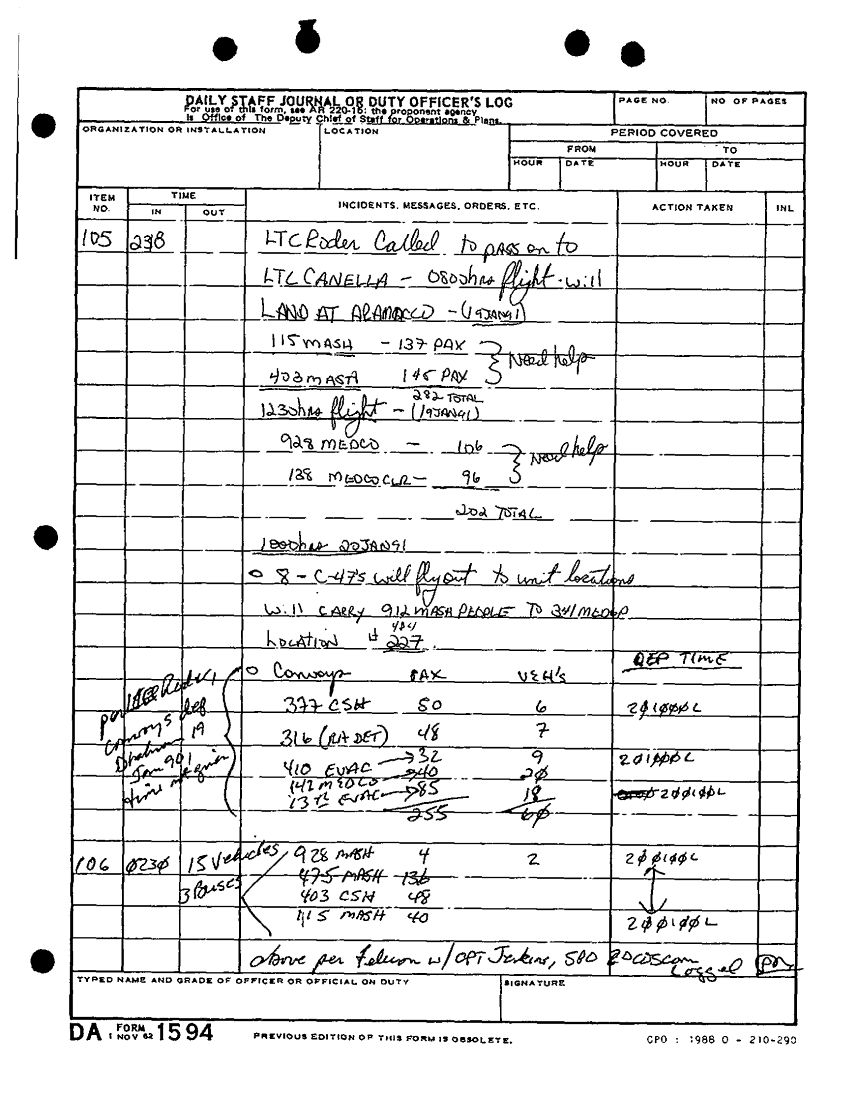 DAILY STAFF JOURNAL OR DUTY OFFICER'S LOG
For use of this form, see AR 220-15; the proponent agency
is Office of The Deputy Chief of Staff for Operations & Plans.
PAGE NO.
NO OF PAGES
ORGANIZATION OR INSTALLATION
LOCATION
PERIOD COVERED
FROM
TO
HOUR
DATE
HOUR
DATE
ITEM NO.
TIME
IN
OUT
INCIDENTS, MESSAGES, ORDERS, ETC.
ACTION TAKEN
INL
105
LTC Roder Called to pass on to
LTC CANELLA - 0800hrs flight - will
LAND AT ARAMCO - (19JAN91)
115 MASH - 137 PAX
403 MASH 145 PAX
Need help
282 TOTAL
1230hrs flight - (19JAN91)
928 MEDCO - 106
138 MEDCO CLR - 96
Need help
202 TOTAL
1800hrs 20JAN91
o 8 - C-47's will fly out to unit locations
will CARRY 912 MASH PEOPLE TO 341 MEDGP
484
LOCATION # 227.
DEP TIME
o Convoys PAX VEH'S
377 CSH 50 6 201000L
316 (RH DET) 48 7
410 EVAC → 32 9 201000L
142 MEDCO → 40 20
13th EVAC → 85 18 200100L
255 60
Convoys dep
Dhahran 19
Jan 901
time no given
106 0230 15 Vehicles
3 Buses
928 MASH 4 2 200100L
475 MASH 136
403 CSH 48
115 MASH 40 200100L
above per telecon w/CPT Jenkins, SDO
Logged
TYPED NAME AND GRADE OF OFFICER OR OFFICIAL ON DUTY
SIGNATURE
DA FORM 1 NOV 62 1594
PREVIOUS EDITION OF THIS FORM IS OBSOLETE.
GPO : 1988 O - 210-290